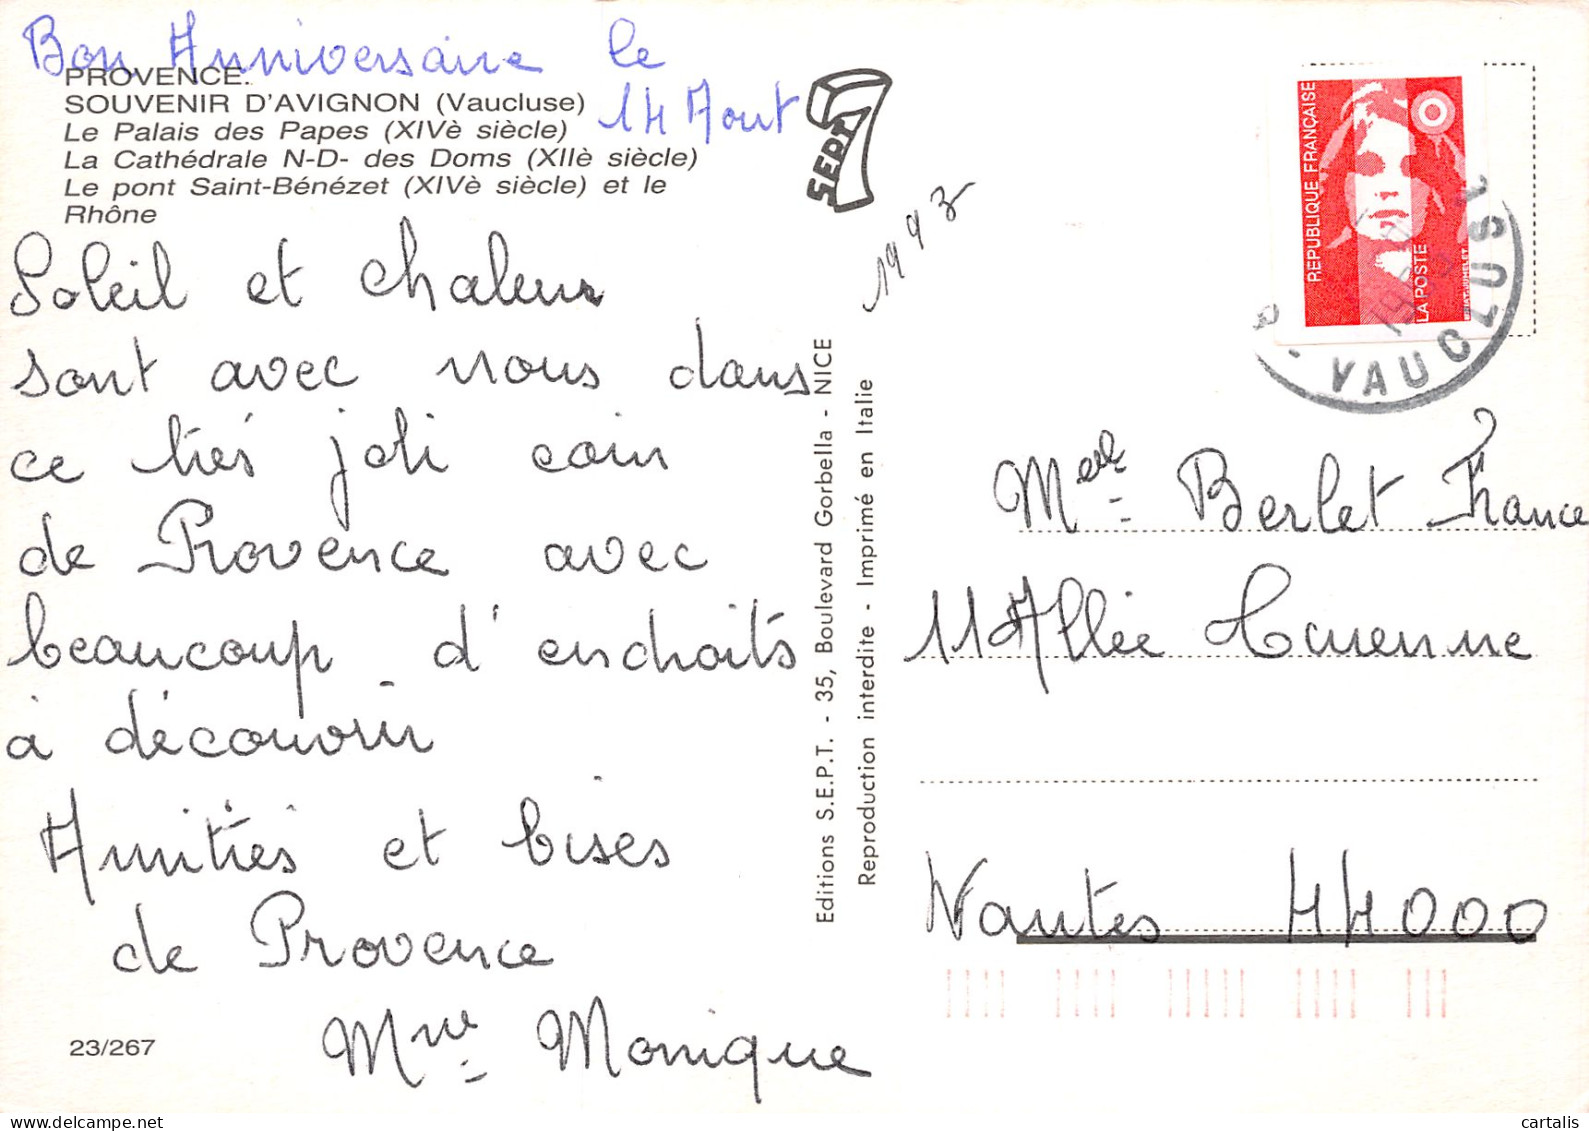 Bon Anniversaire le
14 Aout
PROVENCE.
SOUVENIR D'AVIGNON (Vaucluse)
Le Palais des Papes (XIVè siècle)
La Cathédrale N-D- des Doms (XIIè siècle)
Le pont Saint-Bénézet (XIVè siècle) et le
Rhône
Soleil et chaleur
sont avec nous dans
ce très joli coin
de Provence avec
beaucoup d'endroits
à découvrir
Amitiés et bises
de Provence
Mme Monique
23/267
SEPT
1993
Editions S.E.P.T. - 35, Boulevard Gorbella - NICE
Reproduction interdite - Imprimé en Italie
REPUBLIQUE FRANÇAISE
LA POSTE
VAUCLUSE
Melle Berlet France
11 Allée
Nantes 44000
cartalis